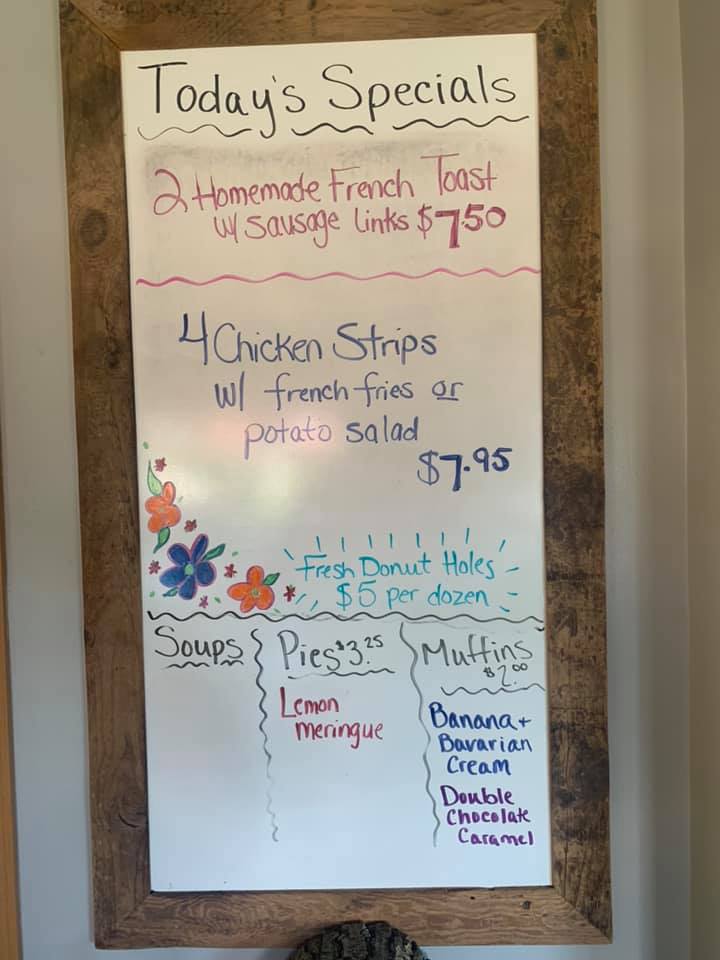 Today's Specials
2 Homemade French Toast
w/ sausage links $7.50
4 Chicken Strips
w/ french fries or
potato salad
$7.95
Fresh Donut Holes
$5 per dozen
Soups
Pies $3.25
Lemon
Meringue
Muffins
$2.00
Banana +
Bavarian
Cream
Double
Chocolate
Caramel